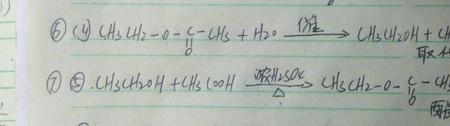 ⑥ (4) CH3CH2-O-C(=O)-CH3 + H2O ⟶ CH3CH2OH + CH
取代
⑦ ⑤ .CH3CH2OH + CH3COOH 浓H2SO4 ⟶ △ CH3CH2-O-C(=O)-CH